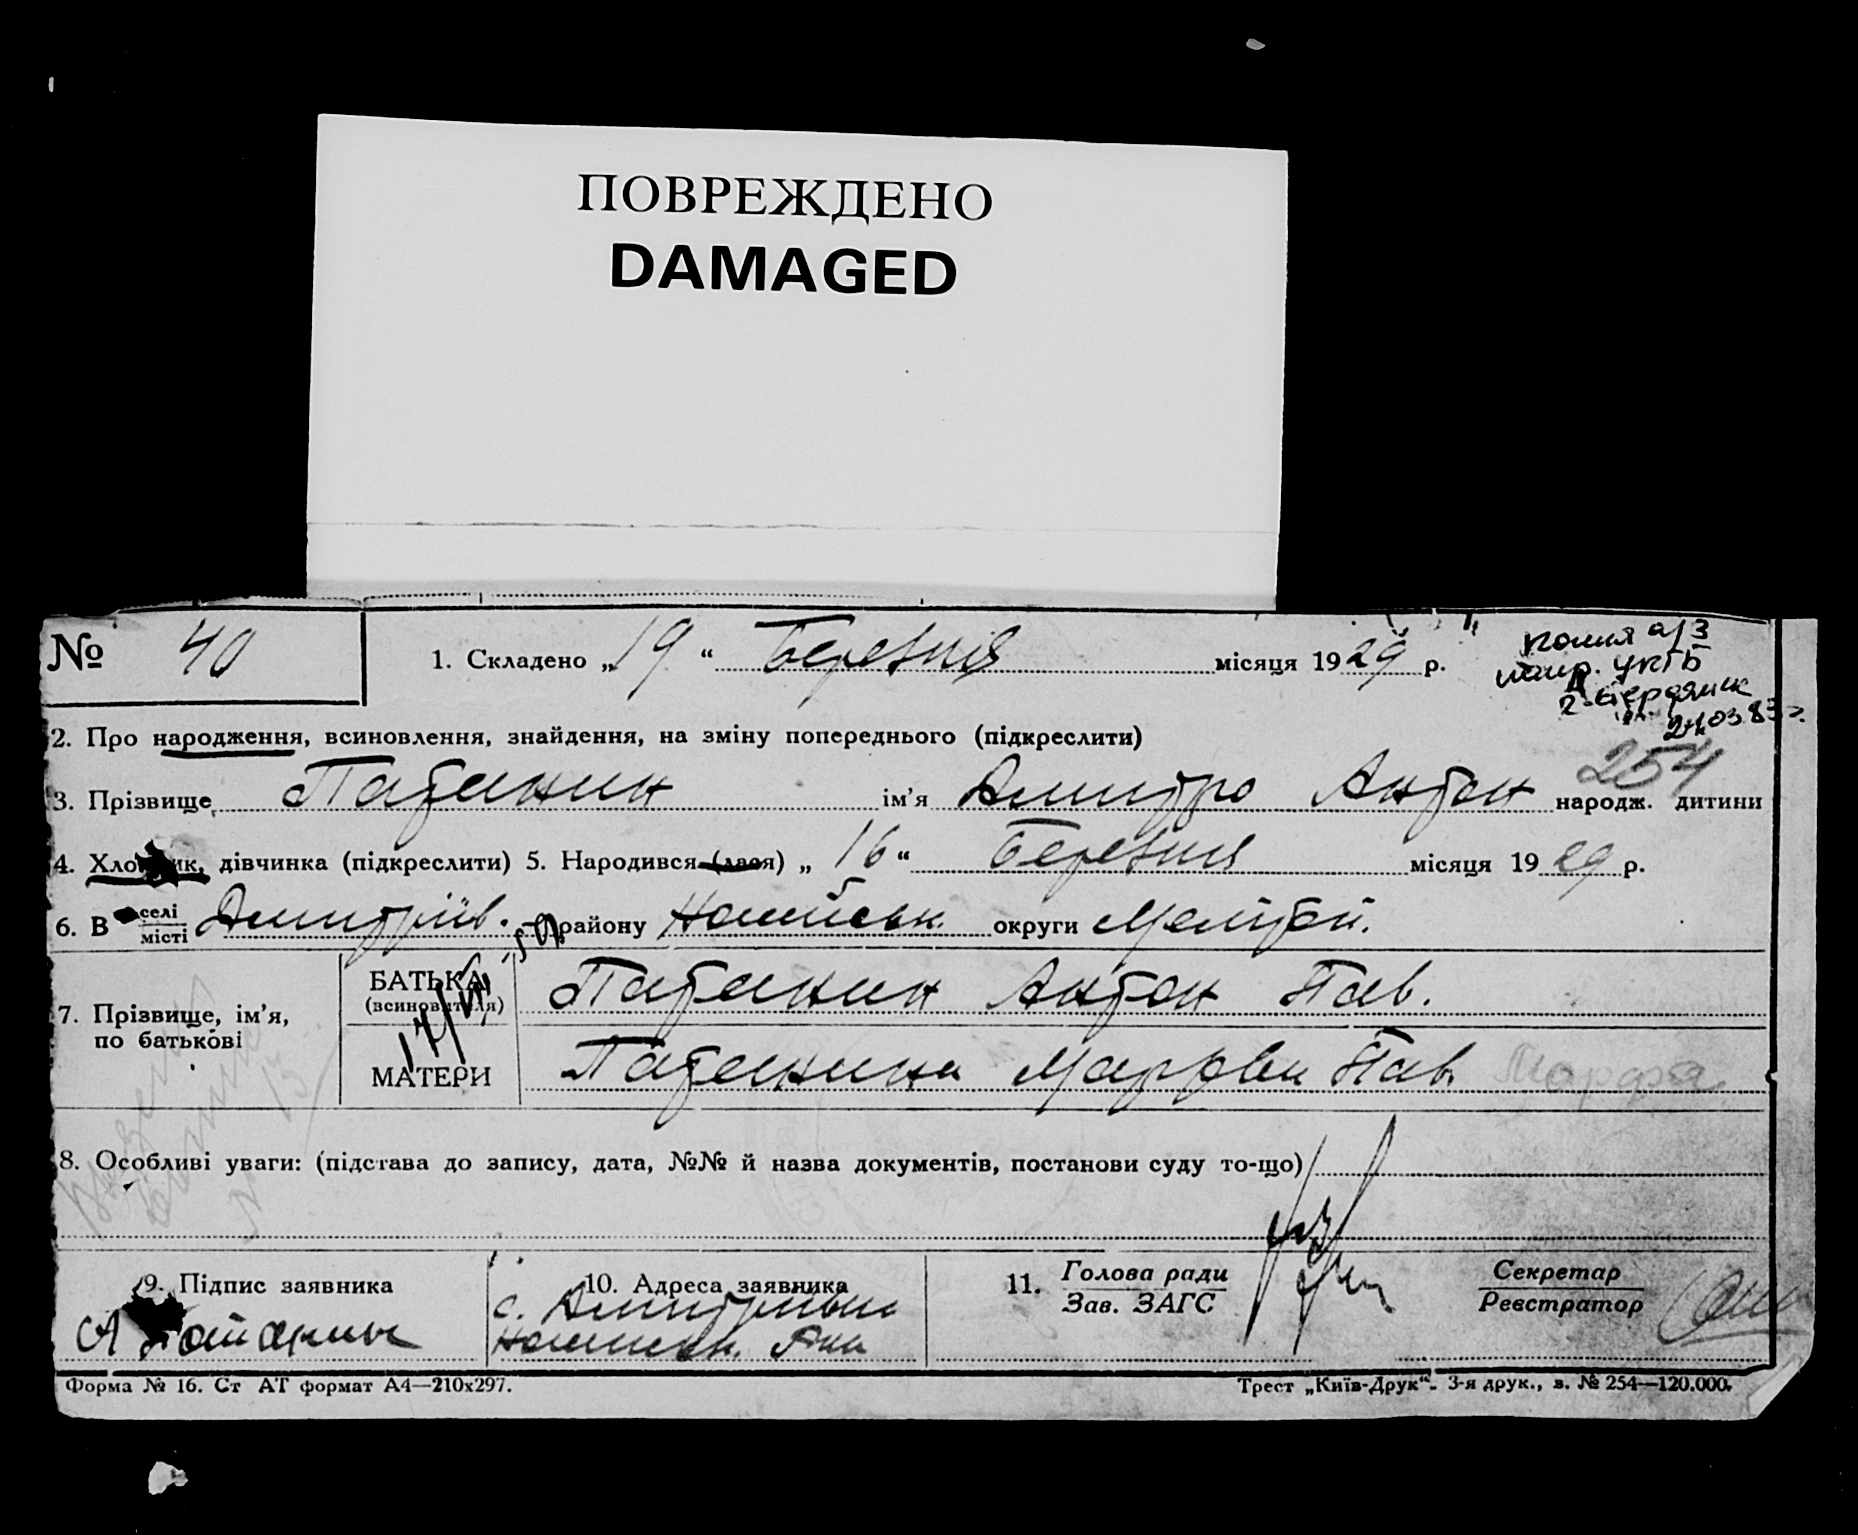 ПОВРЕЖДЕНО
DAMAGED
№ 40
1. Складено „19“ Березня місяця 1929 р.
копия а/з
напр. УКГБ
г. Бердянск
03.83 г.
2. Про народження, всиновлення, знайдення, на зміну попереднього (підкреслити)
254
3. Прізвище Патикин ім’я Дмитро Антон народж. дитини
4. Хло ик, дівчинка (підкреслити) 5. Народився (лася) „16“ Березня місяця 1929 р.
6. В селі Дмитрів. району округи Меліт.
місті
БАТЬКА
(всиновителя)
Патикин Антон Пав.
7. Прізвище, ім’я,
по батькові
МАТЕРИ
Патикина Марфи Пав. Марфа
8. Особливі уваги: (підстава до запису, дата, №№ й назва документів, постанови суду то-що)
9. Підпис заявника
10. Адреса заявника
с.
11. Голова ради
Зав. ЗАГС
Секретар
Реєстратор
Форма № 16. Ст АТ формат А4—210х297.
Трест „Київ-Друк“. 3-я друк., з. № 254—120.000.